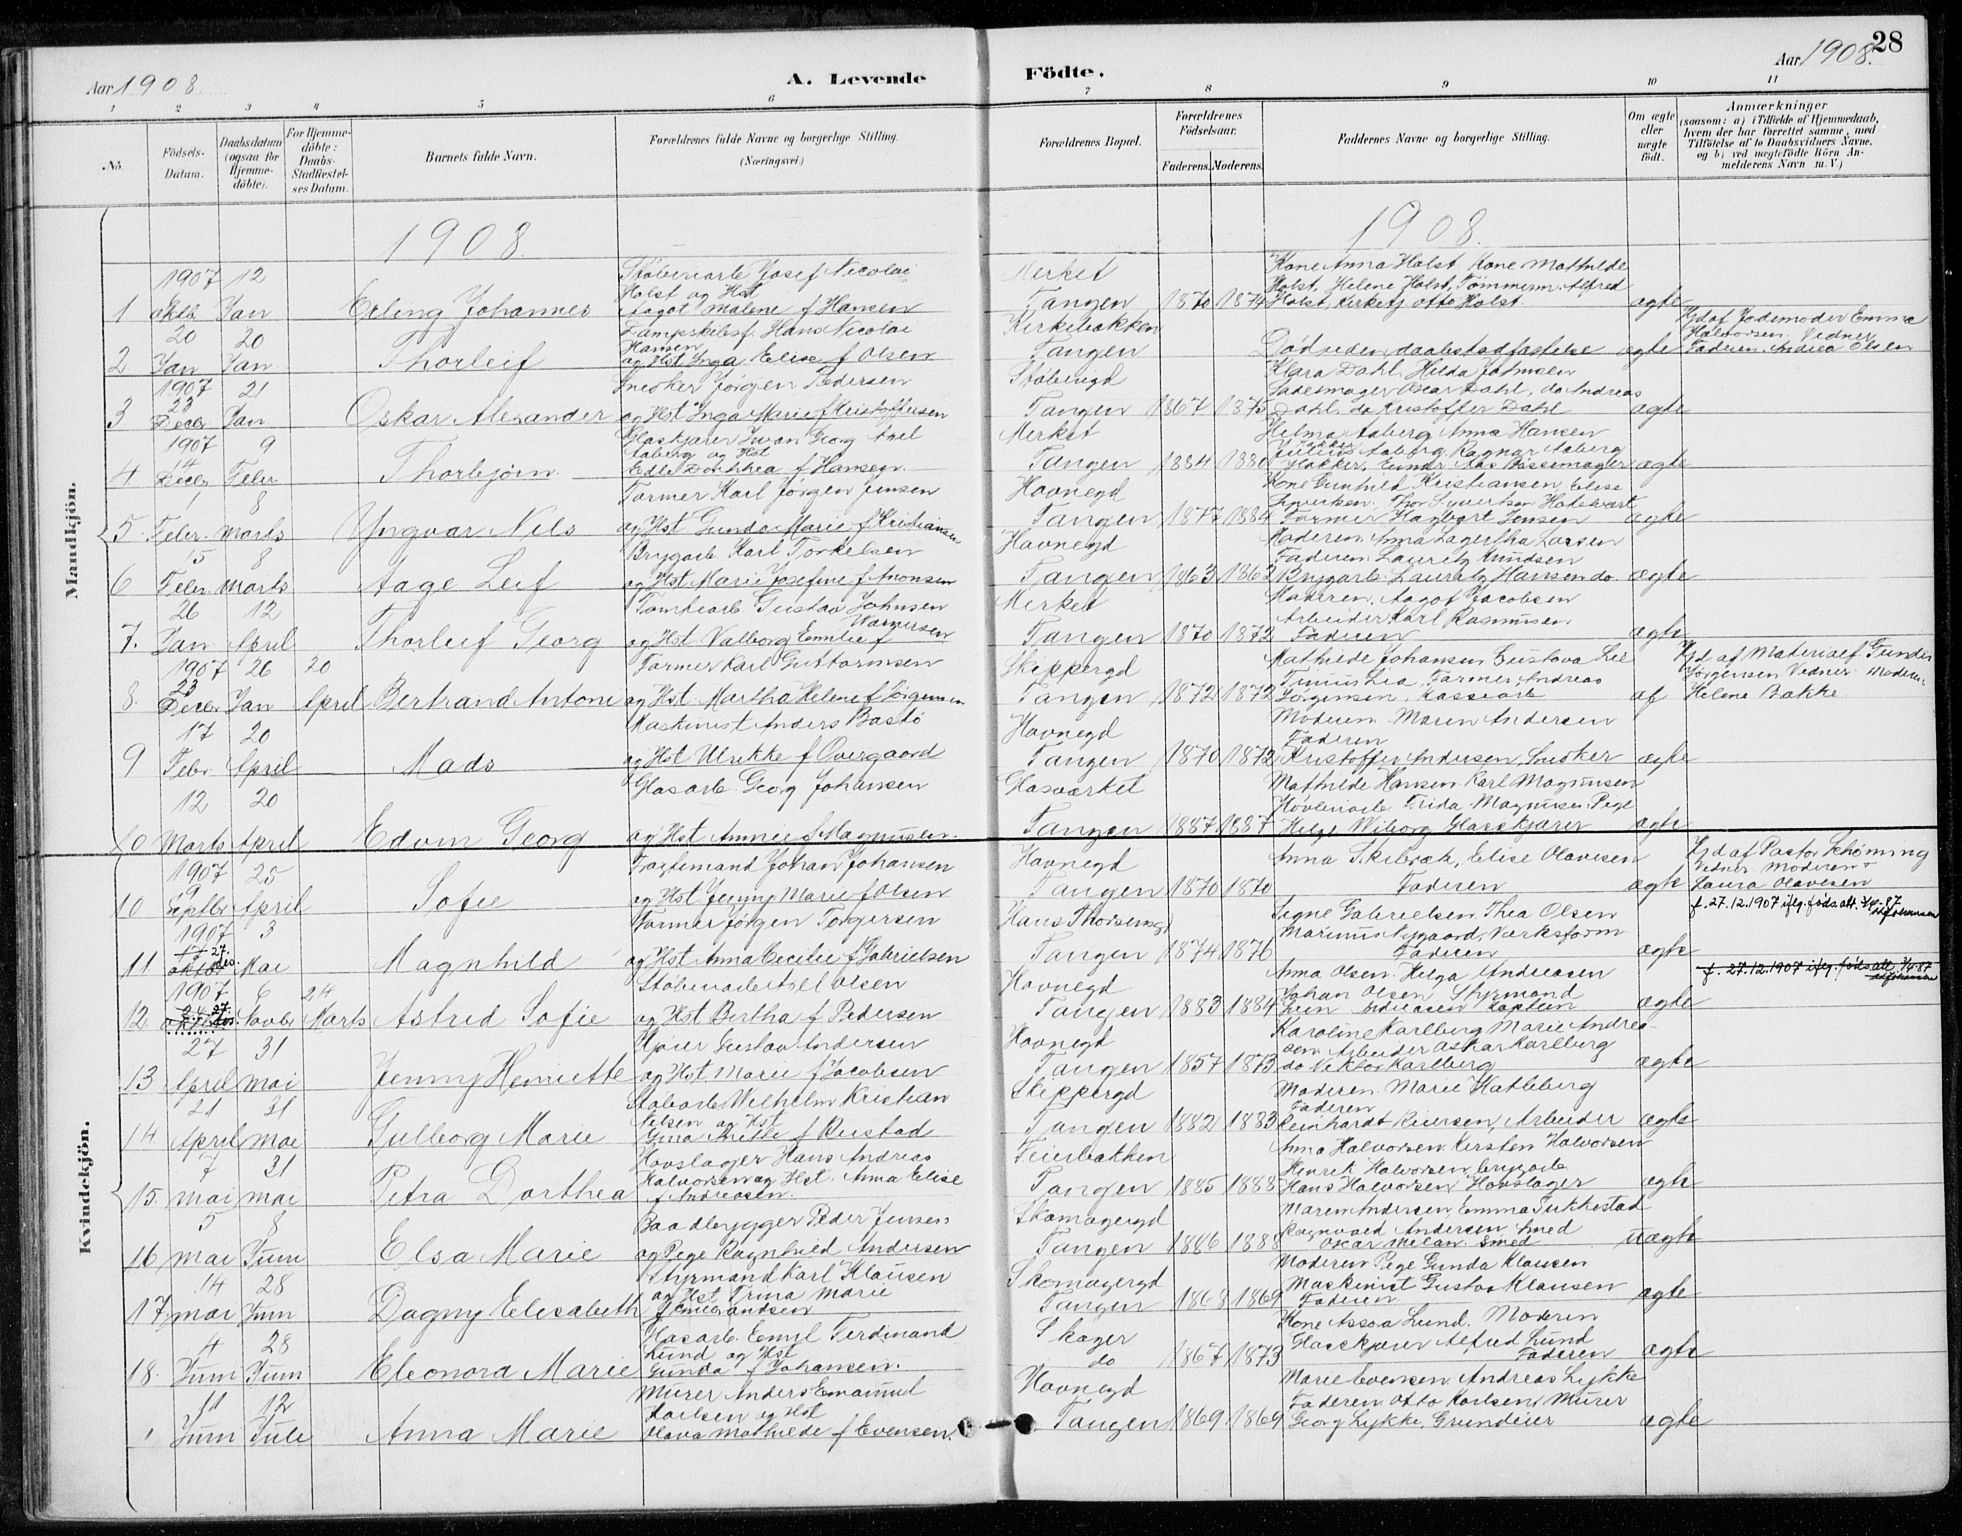 28
Aar 1908
A. Levende
Födte.
Aar 1908.
1 2 3 4 5 6 7 8 9 10 11
No.
Födsels-Datum.
Daabsdatum (ogsaa for Hjemme-döbte).
For Hjemme-döbte: Daabs-Stadfæstel-ses Datum.
Barnets fulde Navn.
Forældrenes fulde Navne og borgerlige Stilling.
(Næringsvei.)
Forældrenes Bopæl.
Forældrenes Födselsaar.
Faderens. Moderens.
Faddernes Navne og borgerlige Stilling.
Om ægte eller uægte födt.
Anmærkninger
(saasom: a) i Tilfælde af Hjemmedaab,
hvem der har forrettet samme, med
Tilföielse af to Daabsvidners Navne.
og b) ved uægtefödte Börn An-
melderens Navn m. V.)
Mandkjön.
1908.
1908.
1907 12
1 Oktb. Jan Erling Johannes
Støberiarb Josef Nicolai
Holst og Hst
Aagot Malene f Hansen
Merket
Tangen 1870 1874
Kone Anna Holst Kone Mathilde
Holst, Helene Holst, Tømmerm. Alfred
Holst, Kirketj Otto Holst
ægte
20 20
2 Jan Jan Thorleif
Dampskibsf. Hans Nicolai
Hansen
og Hst Inga Elise f Olsen
Kirkebakken
Tangen
Død uden daabsstadfæstelse
ægte
Hjd af Jordemoder Emma
Halvorsen. Vedner
Faderen, Andrea Olsen
1907 21
23
3 Decbr Jan Oskar Alexander
Snedker Jørgen Pedersen
og Hst Inga Marie f Kristoffersen
Støberigd
Tangen 1867 1875
Klara Dahl, Hilda Johnsen
Sadelmager Oscar Dahl, do Andreas
Dahl, do Kristoffer Dahl
ægte
1907 9
14
4 Decbr Febr Thorbjørn
Glasskjærer Iwan Georg Axel
Aaberg og Hst
Edle Dorthea f Hansen
Merket
Tangen 1884 1880
Helma Aaberg Anna Hansen
Julius Aaberg, Ragnar Aaberg
Pakker, Einar Aas Bøssemager
ægte
1 8
5 Febr. Marts Yngvar Nils
Former Karl Jørgen Jensen
og Hst Gunda Marie f Kristiansen
Havnegd
Tangen 1877 1884
Kone Gunhild Kristiansen, Elise
Syvertsen, Thor Syvertsen
Former Hagbart Jensen
ægte
15 8
6 Febr. Marts Aage Leif
Brygarb Karl Torkelsen
og Hst Marie Josefine f Aronsen
Havnegd
Tangen 1863 1862
Moderen. Anna Lagertha Larsen
Faderen. Lauritz Knudsen
Brygarb. Lauritz Hansen do
ægte
26 12
7. Jan April Thorleif Georg
Tomtearb Gustav Johnsen
og Hst Valborg Emilie f
Merket
Tangen 1870 1872
Moderen, Aagot Jacobsen
Arbeider Karl Rasmussen
Faderen
ægte
1907 26 20
23
8. Decbr. Jan April Bertrand Antoni
Former Karl Guttormsen
og Hst. Martha Helene f Jørgensen
Skippergd
Tangen 1872 1872
Mathilde Johansen Gustava Lie
Former Andreas
Jørgensen
Hjd af
Jørgensen Vedner. Moderen
Helene Bakke
17 20
9 Febr April Mads
Maskinist Anders Bastø
og Hst Ulrikke f Overgaard
Havnegd
Tangen 1870 1872
Moderen Maren Andersen
Faderen
Kristoffer Andersen, Snedker
ægte
12 20
10 Marts April Edvin Georg
Glasarb. Georg Johansen
og Hst Annie f Magnusen.
Glasværket
Tangen 1887 1887
Mathilde Hansen Karl Magnusen
Høvleriarb Frida Magnusen Pige
Helge Wiborg Glasskjærer
ægte
Kvindekjön.
1907 25
9
10 Septbr April Sofie
Johan Johansen
og Hst Jenny Marie f Olsen
Havnegd
Tangen 1870 1870
Anna Skibrab, Elise Olavesen
Faderen
ægte
Hjd af Pastor Schøning
Vedner Moderen
Laura Olavesen
1907 3
17 27.
11 Oktbr des. Mai Magnhild
Former Jørgen Torgersen
og Hst Anna Cecilie f Gabrielsen
Hans Thorsensgd
Tangen 1874 1876
Signe Gabrielsen, Thea Olsen
Marinius Nygaard, Værksform
Faderen
ægte
f. 27.12.1907 iflg. føds.att. 1/4-87
1907 6 24
27.
12 des. Novbr Marts Astrid Sofie
Støberiarb Axel Olsen
og Hst Bertha f Pedersen
Havnegd
Tangen 1883 1884
Anna Olsen. Helga Andreasen
Johan Olsen Styrmand
Andreasen Kaptein
ægte
f. 27.12.1907 iflg. føds.att. 1/4-87
27 31
13 April Mai Jenny Henriette
Hyrer Gustav Andersen
og Hst. Marie f Jacobsen
Havnegd
Tangen 1857 1873
Karoline Karlberg Marie Andrea-
sen Arbeider Oskar Karlberg
do Viktor Karlberg
ægte
21 31
14 April Mai Gulborg Marie
Wilhelm Kristian
Nilsen og Hst
Gina Anette f Rustad
Skippergd
Tangen 1882 1883
Moderen Marie Hatleberg
Faderen
Reinhardt Iversen, Arbeider
ægte
7 31
15. Mai Mai Petra Dorthea
Hovslager Hans Andreas
Halvorsen og Hst. Anna Elise
f Andreasen.
Feierbakken
Tangen 1885 1888
Anna Halvorsen Kirsten Halvorsen
Henrik Halvorsen, brygarb
Hans Halvorsen Hovslager
ægte
5 8
16 Mai Juni Elsa Marie
Baadbygger Peder Jensen
og Pige Ragnhild Andersen
Skomagergd
Tangen 1886 1888
Maren Andersen, Emma Sukkestad
Ragnvald Andersen Smed
Oscar Smed
uægte
14 28
17 Mai Juni Dagny Elisabeth
Styrmand Karl Klausen
og Hst Trina Marie
Skomagergd
Tangen 1868 1869
Moderen Pige Gunda Klausen
Maskinist Gustav Klausen
Faderen
ægte
4 28
18. Juni Juni Eleonora Marie
Glasarb. Emil Ferdinand
Lund og Hst
Gunda f Johansen.
Skager
do 1867 1873
Kone Assoa Lund. Moderen
Glasskjærer Alfred Lund
Faderen
ægte
11 12
Juni Juli Anna Marie
Murer Anders Emanuel
Karlsen og Hst
Olava Mathilde f Evensen.
Havnegd
Tangen 1869 1869
Marie Evensen. Andreas Lykke
Faderen Otto Karlsen, Murer
Georg Lykke, Grundeier
ægte